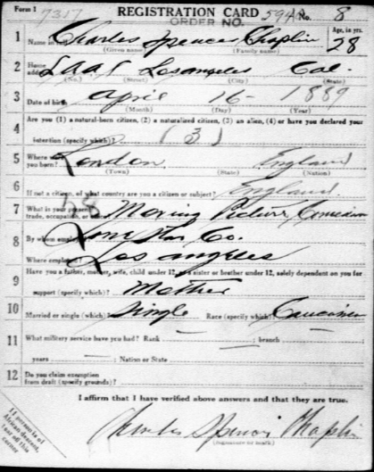 Form 1 7317 REGISTRATION CARD No. 8
ORDER NO.
1 Name in full Charles Spencer Chaplin Age, in yrs. 28
(Given name) (Family name)
2 Home address L.A.A.C. Los angeles Cal.
(No.) (Street) (City) (State)
3 Date of birth april 16 1889
(Month) (Day) (Year)
4 Are you (1) a natural-born citizen, (2) a naturalized citizen, (3) an alien, (4) or have you declared your
intention (specify which)? (3)
5 Where were you born? London England
(Town) (State) (Nation)
6 If not a citizen, of what country are you a citizen or subject? England
7 What is your present trade, occupation, or office? Moving Picture Comedian
8 By whom employed? Lone Star Co.
Where employed? Los angeles
9 Have you a father, mother, wife, child under 12, or a sister or brother under 12, solely dependent on you for
support (specify which)? Mother
10 Married or single (which)? Single Race (specify which)? Caucasian
11 What military service have you had? Rank — ; branch —
years — ; Nation or State —
12 Do you claim exemption
from draft (specify grounds)?
I affirm that I have verified above answers and that they are true.
Charles Spencer Chaplin
(Signature or mark)